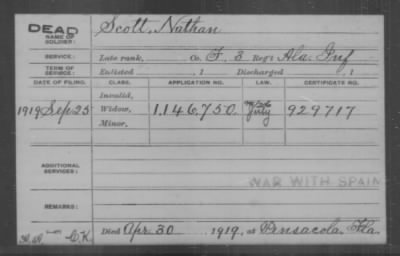 DEAD
NAME OF SOLDIER: Scott, Nathan
SERVICE: Late rank, Co. F. 3 Reg't Ala. Inf
TERM OF SERVICE: Enlisted , 1 Discharged , 1
DATE OF FILING. CLASS. APPLICATION NO. LAW. CERTIFICATE NO.
Invalid,
1919 Sep. 25 Widow, 1.146.750. July 929717
Minor,
ADDITIONAL SERVICES:
WAR WITH SPAIN
REMARKS:
C.K. Died Apr. 30 1919, at Pensacola, Fla.